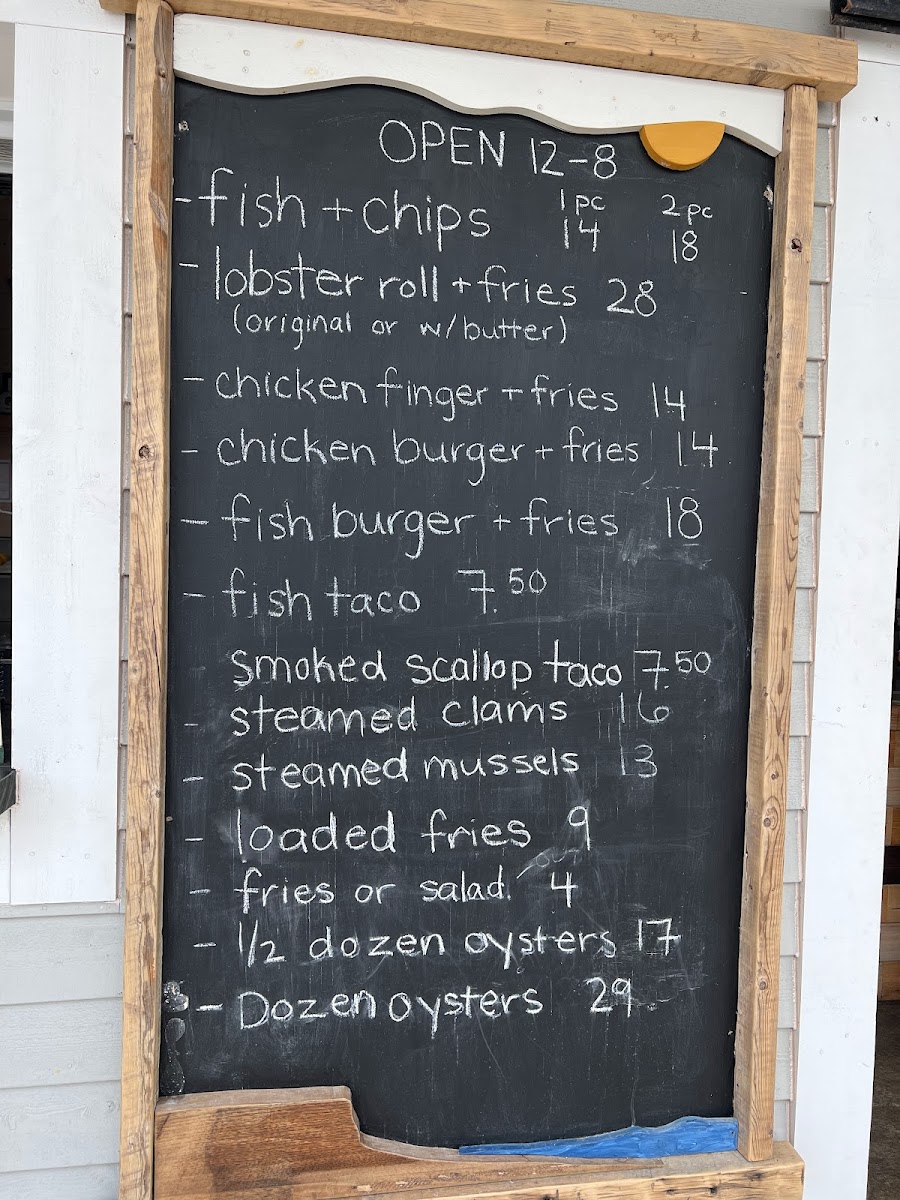 OPEN 12-8
- fish + chips 1 pc 14 2 pc 18
- lobster roll + fries 28
(original or w/butter)
- chicken finger + fries 14
- chicken burger + fries 14
- fish burger + fries 18
- fish taco 7.50
smoked scallop taco 7.50
- steamed clams 16
- steamed mussels 13
- loaded fries 9
- fries or salad. 4
- 1/2 dozen oysters 17
- Dozen oysters 29